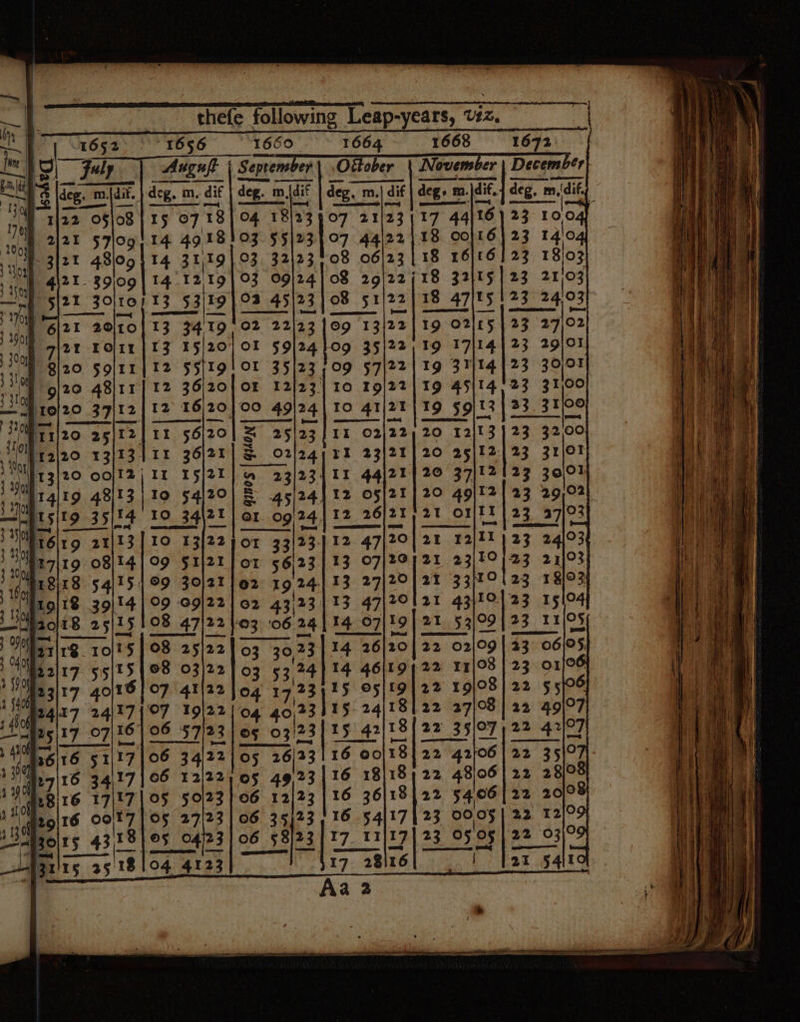 these following Leap-years, viz.
1652 1656 1660 1664 1668 1672
Dayes July August September October November December
deg. m. dif. deg. m. dif deg. m. dif deg. m. dif deg. m. dif. deg. m. dif.
1 22 05 08 15 07 18 04 18 23 07 21 23 17 44 16 23 10 04
2 21 57 09 14 49 18 03 55 23 07 44 22 18 00 16 23 14 04
3 21 48 09 14 31 19 03 32 23 08 06 23 18 16 16 23 18 03
4 21 39 09 14 12 19 03 09 24 08 29 22 18 32 15 23 21 03
5 21 30 10 13 53 19 02 45 23 08 51 22 18 47 15 23 24 03
6 21 20 10 13 34 19 02 22 23 09 13 22 19 02 15 23 27 02
7 21 10 11 13 15 20 01 59 24 09 35 22 19 17 14 23 29 01
8 20 59 11 12 55 19 01 35 23 09 57 22 19 31 14 23 30 01
9 20 48 11 12 36 20 01 12 23 10 19 22 19 45 14 23 31 00
10 20 37 12 12 16 20 00 49 24 10 41 21 19 59 13 23 31 00
11 20 25 12 11 56 20 North 25 23 11 02 22 20 12 13 23 32 00
12 20 13 13 11 36 21 02 24 11 23 21 20 25 12 23 31 01
13 20 00 12 11 15 21 South 23 23 11 44 21 20 37 12 23 30 01
14 19 48 13 10 54 20 45 24 12 05 21 20 49 12 23 29 02
15 19 35 14 10 34 21 01 09 24 12 26 21 21 01 11 23 27 03
16 19 21 13 10 13 22 01 33 23 12 47 20 21 12 11 23 24 03
17 19 08 14 09 51 21 01 56 23 13 07 20 21 23 10 23 21 03
18 18 54 15 09 30 21 02 19 24 13 27 20 21 33 10 23 18 03
19 18 39 14 09 09 22 02 43 23 13 47 20 21 43 10 23 15 04
20 18 25 15 08 47 22 03 06 24 14 07 19 21 53 09 23 11 05
21 18 10 15 08 25 22 03 30 23 14 26 20 22 02 09 23 06 05
22 17 55 15 08 03 22 03 53 24 14 46 19 22 11 08 23 01 06
23 17 40 16 07 41 22 04 17 23 15 05 19 22 19 08 22 55 06
24 17 24 17 07 19 22 04 40 23 15 24 18 22 27 08 22 49 07
25 17 07 16 06 57 23 05 03 23 15 42 18 22 35 07 22 42 07
26 16 51 17 06 34 22 05 26 23 16 00 18 22 42 06 22 35 07
27 16 34 17 06 12 22 05 49 23 16 18 18 22 48 06 22 28 08
28 16 17 17 05 50 23 06 12 23 16 36 18 22 54 06 22 20 08
29 16 00 17 05 27 23 06 35 23 16 54 17 23 00 05 22 12 09
30 15 43 18 05 04 23 06 58 23 17 11 17 23 05 05 22 03 09
31 15 25 18 04 41 23 17 28 16 21 54 10
Aa 2